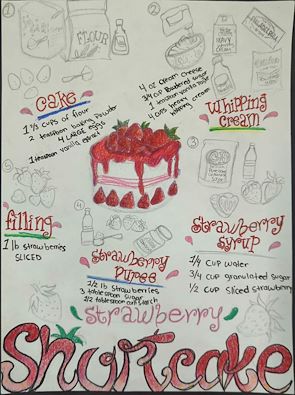 ①
FLOUR
Cake
1 1/3 cups of flour
2 teaspoon baking powder
4 LARGE eggs
1 teaspoon vanilla extract
②
HEAVY
CREAM
4 oz cream cheese
3/4 cup powdered sugar
1 teaspoon vanilla
4 cups heavy
whipping cream
Whipping
cream
⑤
filling
1 lb strawberries
SLICED
④
Strawberry
Puree
1/2 lb strawberries
3 tablespoon sugar
1/2 tablespoon cornstarch
③
Strawberry
Syrup
1/4 cup water
3/4 cup granulated sugar
1/2 cup sliced strawberry
Strawberry
Shortcake